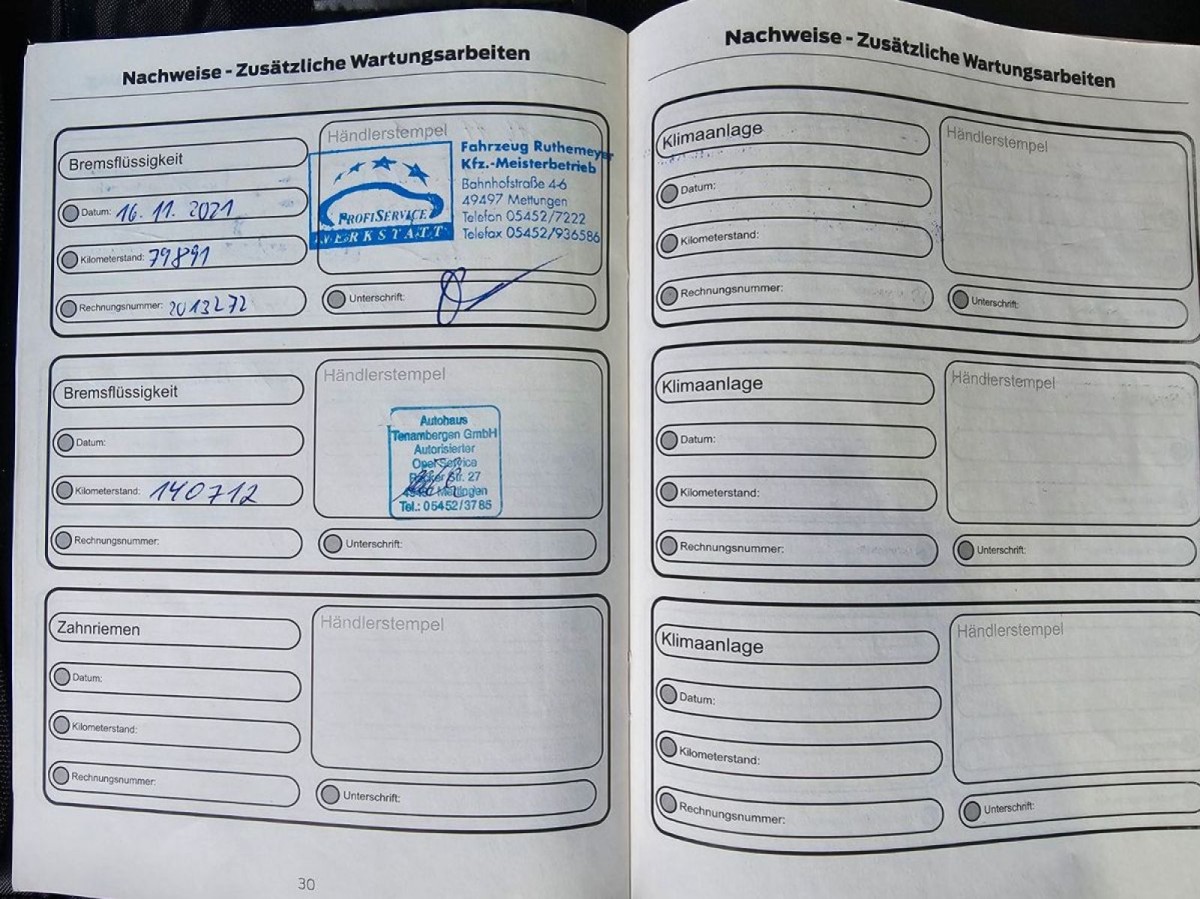 Nachweise - Zusätzliche Wartungsarbeiten
Bremsflüssigkeit
Datum: 16. 11. 2021
Kilometerstand: 79891
Rechnungsnummer: 2013272
Händlerstempel
PROFISERVICE
WERKSTATT
Fahrzeug Ruthemeyer
Kfz.-Meisterbetrieb
Bahnhofstraße 4-6
49497 Mettungen
Telefon 05452/7222
Telefax 05452/936586
Unterschrift:
Bremsflüssigkeit
Datum:
Kilometerstand: 140712
Rechnungsnummer:
Händlerstempel
Autohaus
Tenambergen GmbH
Autorisierter
Opel Service
Str. 27
49497 Mettingen
Tel.: 05452/3785
Unterschrift:
Zahnriemen
Datum:
Kilometerstand:
Rechnungsnummer:
Händlerstempel
Unterschrift:
30
Nachweise - Zusätzliche Wartungsarbeiten
Klimaanlage
Datum:
Kilometerstand:
Rechnungsnummer:
Händlerstempel
Unterschrift:
Klimaanlage
Datum:
Kilometerstand:
Rechnungsnummer:
Händlerstempel
Unterschrift:
Klimaanlage
Datum:
Kilometerstand:
Rechnungsnummer:
Händlerstempel
Unterschrift: